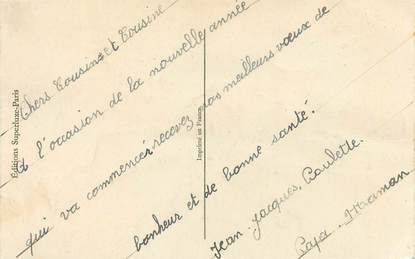 Chers Cousins et Cousine
A l'occasion de la nouvelle année
qui va commencer recevez nos meilleurs vœux de
bonheur et de bonne santé.
Jean-Jacques, Paulette.
Papa. Maman.
Éditions Superluxe-Paris
Imprimé en France